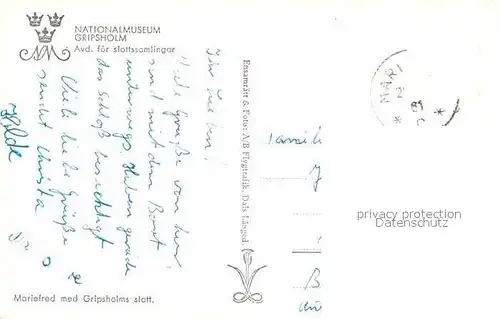 NATIONALMUSEUM
GRIPSHOLM
Avd. för slottssamlingar
Ihr Lieben!
Viele Grüße von hier,
sind mit dem Boot
unterwegs. Haben gerade
das Schloß besichtigt
Viele liebe Grüße
sendet Christa
Hilde
Mariefred med Gripsholms slott.
Ensamrätt & Foto: A/B Flygtrafik, Dals Långed.
MARI
2
Famili
B
privacy protection
Datenschutz